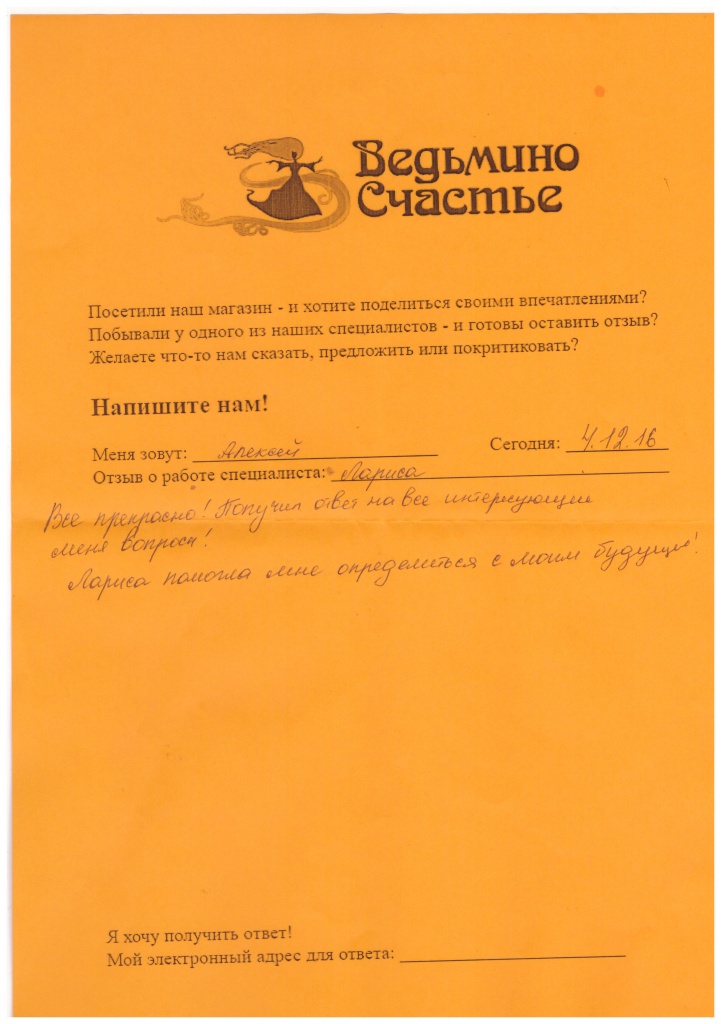 Ведьмино
Счастье
Посетили наш магазин - и хотите поделиться своими впечатлениями?
Побывали у одного из наших специалистов - и готовы оставить отзыв?
Желаете что-то нам сказать, предложить или покритиковать?
Напишите нам!
Меня зовут: Алексей Сегодня: 4.12.16
Отзыв о работе специалиста: Лариса
Все прекрасно! Получил ответ на все интересующие
меня вопросы!
Лариса помогла мне определиться с моим будущим!
Я хочу получить ответ!
Мой электронный адрес для ответа: